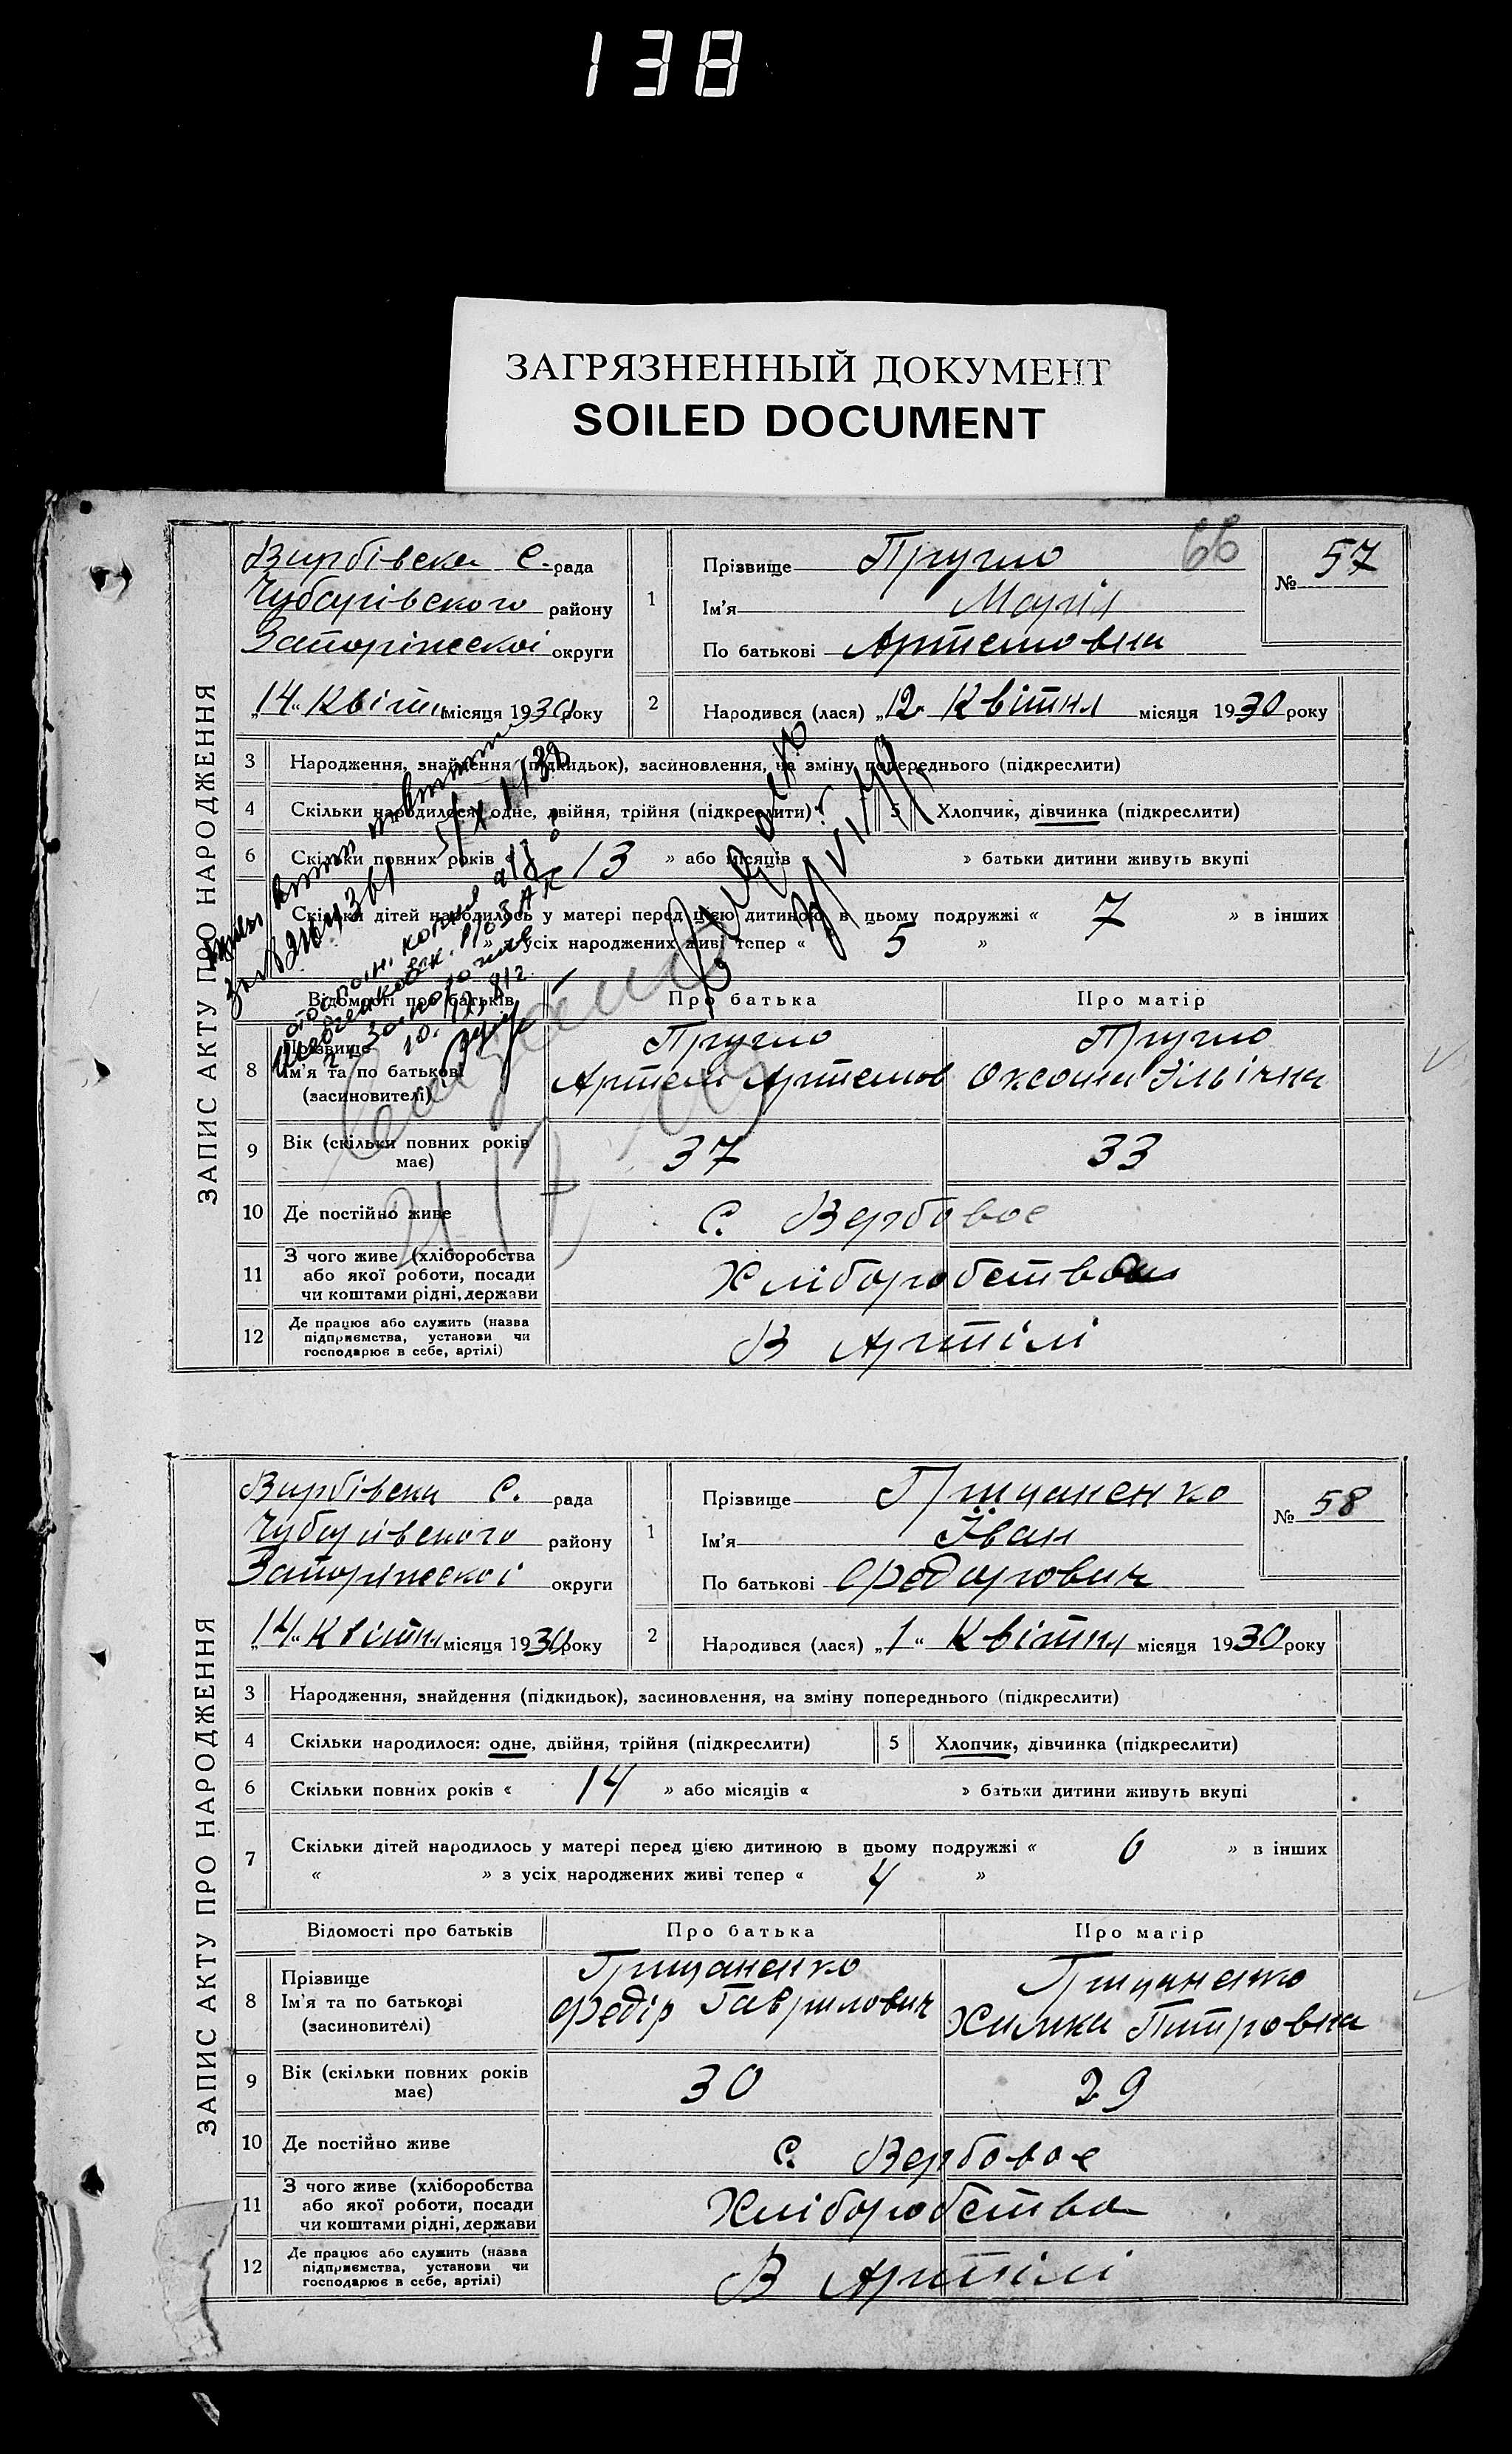 138
ЗАГРЯЗНЕННЫЙ ДОКУМЕНТ
SOILED DOCUMENT
66
ЗАПИС АКТУ ПРО НАРОДЖЕННЯ
Вирбівска С. рада
Чубарівского району
Запоріжскої округи
„14“ Квітня місяця 1930 року
1 Прізвище Пругло
Ім'я Марія
По батькові Артемовна
№ 57
2 Народився (лася) „12 Квітня місяця 1930 року
3 Народження, знайдення (підкидьок), засиновлення, на зміну попереднього (підкреслити)
4 Скільки народилося: одне, двійня, трійня (підкреслити) 5 Хлопчик, дівчинка (підкреслити)
6 Скільки повних років « 13 » або місяців « » батьки дитини живуть вкупі
Скільки дітей народилось у матері перед цією дитиною в цьому подружжі « 7 » в інших
» з усіх народжених живі тепер « 5 »
Відомості про батьків Про батька Про матір
8 Прізвище Ім'я та по батькові (засиновителі)
Пругло Артем Артемов
Пругло Оксана Ільічна
9 Вік (скільки повних років має) 37 33
10 Де постійно живе С. Вербовое
11 З чого живе (хліборобства або якої роботи, посади чи коштами рідні, держави Хліборобства
12 Де працює або служить (назва підприємства, установи чи господарює в себе, артілі) В Артілі
ЗАПИС АКТУ ПРО НАРОДЖЕННЯ
Вирбівска С. рада
Чубарівского району
Запоріжскої округи
„14“ Квітня місяця 1930 року
1 Прізвище Грицаненко
Ім'я Іван
По батькові Федорович
№ 58
2 Народився (лася) „1“ Квітня місяця 1930 року
3 Народження, знайдення (підкидьок), засиновлення, на зміну попереднього (підкреслити)
4 Скільки народилося: одне, двійня, трійня (підкреслити) 5 Хлопчик, дівчинка (підкреслити)
6 Скільки повних років « 14 » або місяців « » батьки дитини живуть вкупі
7 Скільки дітей народилось у матері перед цією дитиною в цьому подружжі « 6 » в інших
« » з усіх народжених живі тепер « 4 »
Відомості про батьків Про батька Про матір
8 Прізвище Ім'я та по батькові (засиновителі)
Грицаненко Федір Гаврилович
Грицаненко Химка Питровна
9 Вік (скільки повних років має) 30 29
10 Де постійно живе С. Вербовое
11 З чого живе (хліборобства або якої роботи, посади чи коштами рідні, держави Хліборобства
12 Де працює або служить (назва підприємства, установи чи господарює в себе, артілі) В Артілі